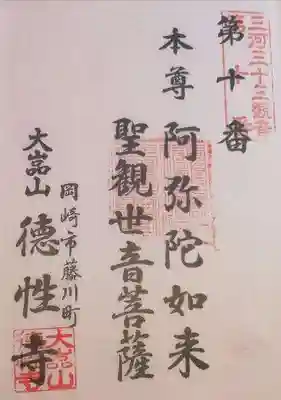 三河三十三観音
第十番
本尊 阿弥陀如来
聖觀世音菩薩
岡崎市藤川町
大嵓山 德性寺
大嵓山